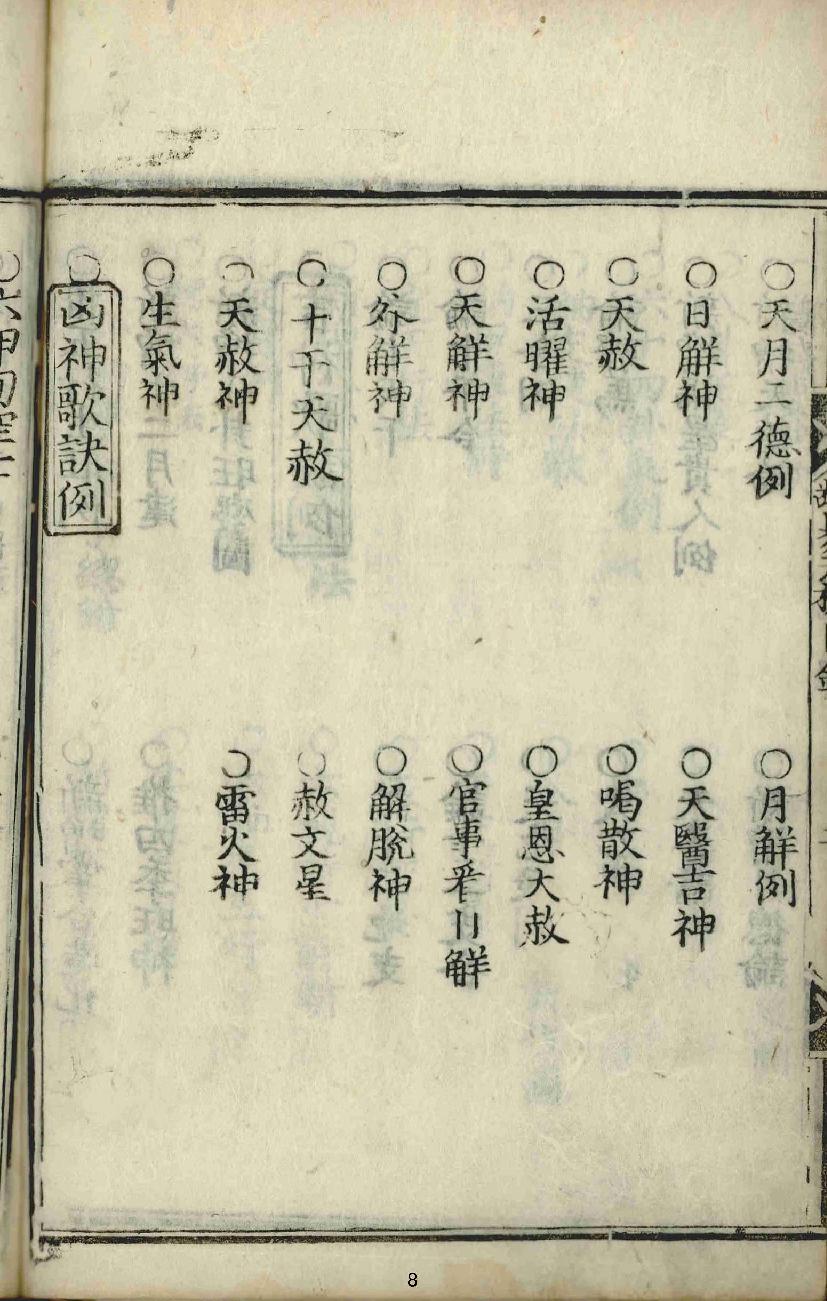 ○天月二德例
○月解例
○日解神
○天醫吉神
○天赦
○喝散神
○活曜神
○皇恩大赦
○天解神
○官事看日解
○外解神
○解脫神
○十干天赦
○赦文星
○天赦神
○雷火神
○生氣神
○凶神歌訣例
8